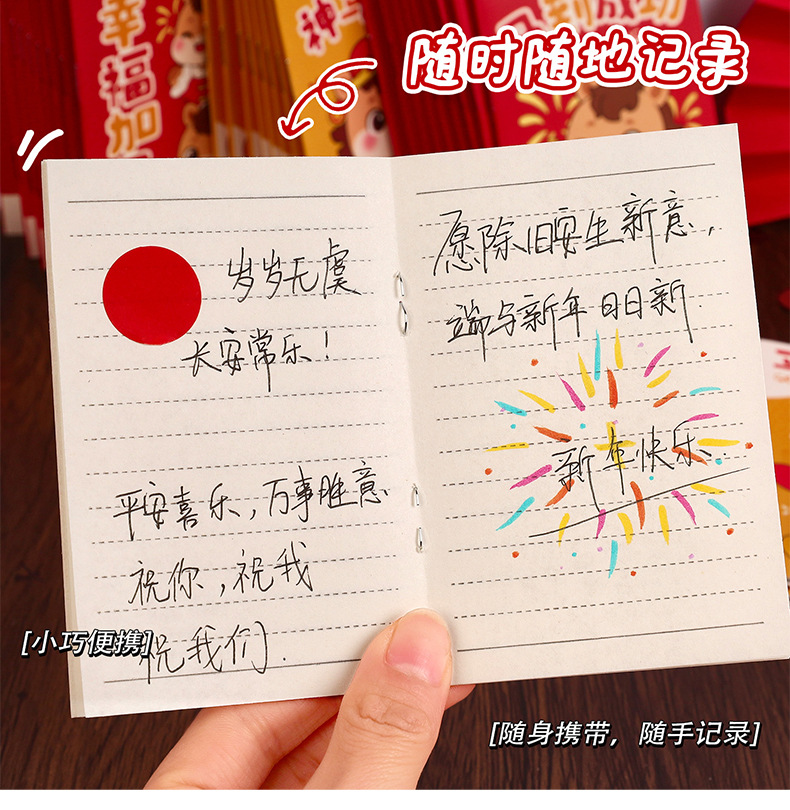 幸福加
随时随地记录
岁岁无虞
长安常乐!
平安喜乐,万事胜意
祝你,祝我
祝我们.
愿除旧妄生新意,
端与新年日日新.
新年快乐.
[小巧便携]
[随身携带, 随手记录]